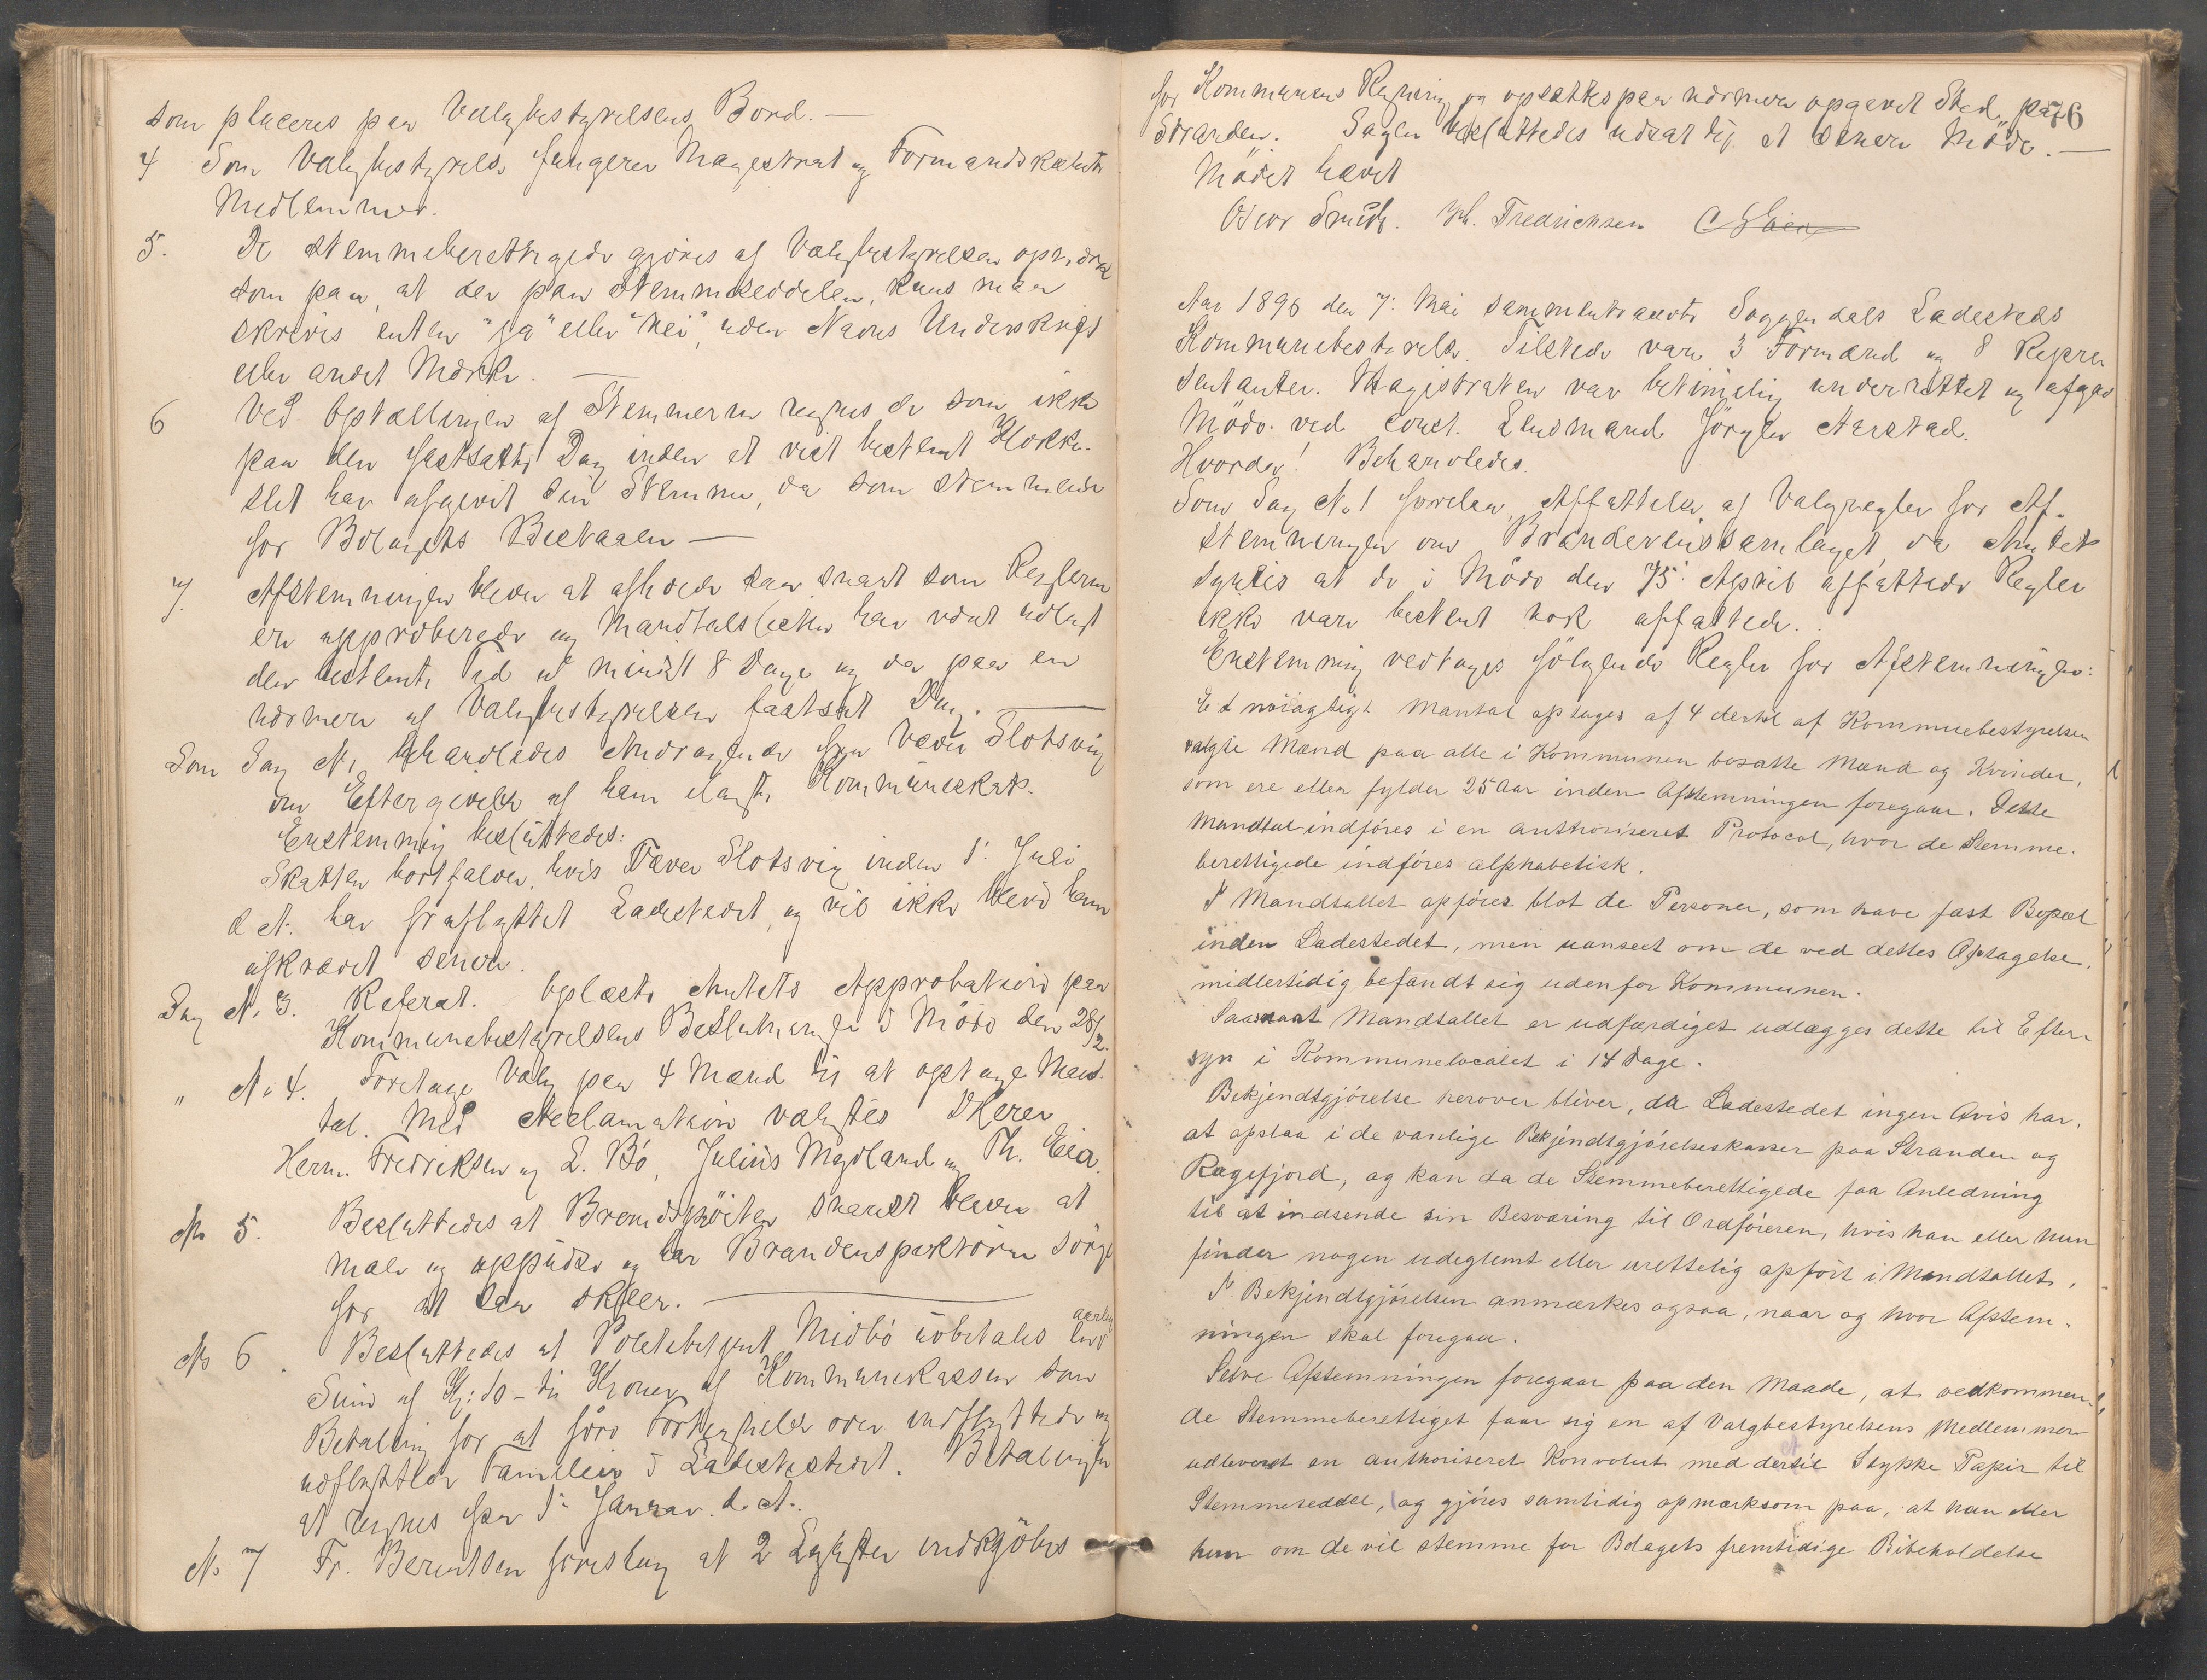 som placeres paa Valgbestyrelsens Bord. —
4 Som Valgbestyrelse fungerer Magestrat og Formandskabets
Medlemmer.
5. De stemmeberettigede gjøres af Valgbestyrelsen opmærk
som paa, at der paa Stemmeseddelen, kuns maa
skrives enten "ja" eller "Nei", uden Navns Underskrift
eller andet Mærke. —
6 Ved Optællingen af Stemmerne regnes de som ikke
paa den fastsatte Dag inden et vist bestemt Klokke-
slet har afgivet sin Stemme, da som stemmende
for Bolagets Bestaaen —
7. Afstemningen bliver at afholde saa snart som Reglerne
er approberede og Mandtalslisten har været udlagt
den bestemte Tid af mindst 8 Dage og da paa en
nærmere af Valgbestyrelsen fastsat Dag. —
Som Sag No behandledes Andragende fra Tævar Slotsvig
om Eftergivelse af ham ilagte Kommuneskat.
Enstemmig besluttedes:
Skatten bortfalder, hvis Tæver Slotsvig inden 1. Juli
d A. har fraflyttet Ladestedet, og vil ikke blive ham
afkrævet senere.
Sag No 3. Referat. Oplæste Amtets Approbation paa
Kommunebestyrelsens Beslutninger i Møde den 28/2.
" No 4. Foretage Valg paa 4 Mænd til at optage Man-
tal. Med Acclamation valgtes DHerer
Herm. Fredriksen og L. Bø, Julius Mydland og Th. Eia.
No 5. Besluttedes at Brandsprøiten snarest bliver at
male og oppudse og har Brandinspektøren sørge
for at saa skjeer. —
No 6. Besluttedes at Politibetjent Midbø udbetales en aarlig
Sum af Kr: 10 – ti Kroner af Kommunekassen som
Betaling for at føre Fortegnelse over indflyttede og
udflyttede Familier i Ladestedet. Betalingen
at regnes fra 1. Januar d. A.
No 7 Fr. Berentsen foreslog at 2 Lygter indkjøbes
76
for Kommunens Regning og opsættes paa nærmere opgivet Sted paa
Stranden. Sagen besluttedes udsat til et senere Møde. —
Mødet hævet
Oscar Smith. Hh. Fredrichsen
Aar 1896 den 7. Mai sammentraadte Soggendals Ladesteds
Kommunebestyrelse. Tilstede vare 3 Formænd og 8 Repræ
sentanter. Magistraten var betimelig underrettet og afgav
Møde ved const. Lensmand Jørgen Aarstad.
Hvorda! Behandledes.
Som Sag No 1 forelaa Affattelse af Valgregler for Af-
stemningen om Brændevinssamlaget, da Amtet
syntes at de i Møde den 15. April affattede Regler
ikke vare bestemt nok affattede.
Enstemmig vedtages følgende Regler for Afstemningen:
Et nöiagtigt Mantal optages af 4 dertil af Kommuebestyrelsen
valgte Mænd paa alle i Kommunen bosatte Mænd og Kvinder,
som ere eller fylder 25 Aar inden Afstemningen foregaar. Dette
Mandtal indføres i en authoriseret Protocol, hvor de Stemme-
berettigede indføres alphabetisk.
I Mandtallet opføres blot de Personer, som have fast Bopæl
inden Ladestedet, men uanseet om de ved dettes Optagelse,
midlertidig befandt sig udenfor Kommunen.
Saasnart Mandtallet er udfærdiget udlægges dette til Efter-
syn i Kommunelocalet i 14 Dage.
Bekjendtgjørelse herover bliver, da Ladestedet ingen Avis har,
at opslaa i de vanlige Bekjendtgjørelseskasser paa Stranden og
Rægefjord, og kan da de Stemmeberettigede faa Anledning
til at indsende sin Besværing til Ordføreren, hvis han eller hun
finder nogen udeglemt eller urettelig opført i Mandtallet.
I Bekjendtgjørelsen anmærkes ogsaa, naar og hvor Afstem-
ningen skal foregaa.
Selve Afstemningen foregaar paa den Maade, at vedkommen-
de Stemmeberettiget faar sig en af Valgbestyrelsens Medlemmer
udleveret en authoriseret Konvolut med dertil Stykke Papir til
Stemmeseddel, og gjøres samtidig opmærksom paa, at han eller
hun om de vil stemme for Bolagets fremtidige Bibeholdelse